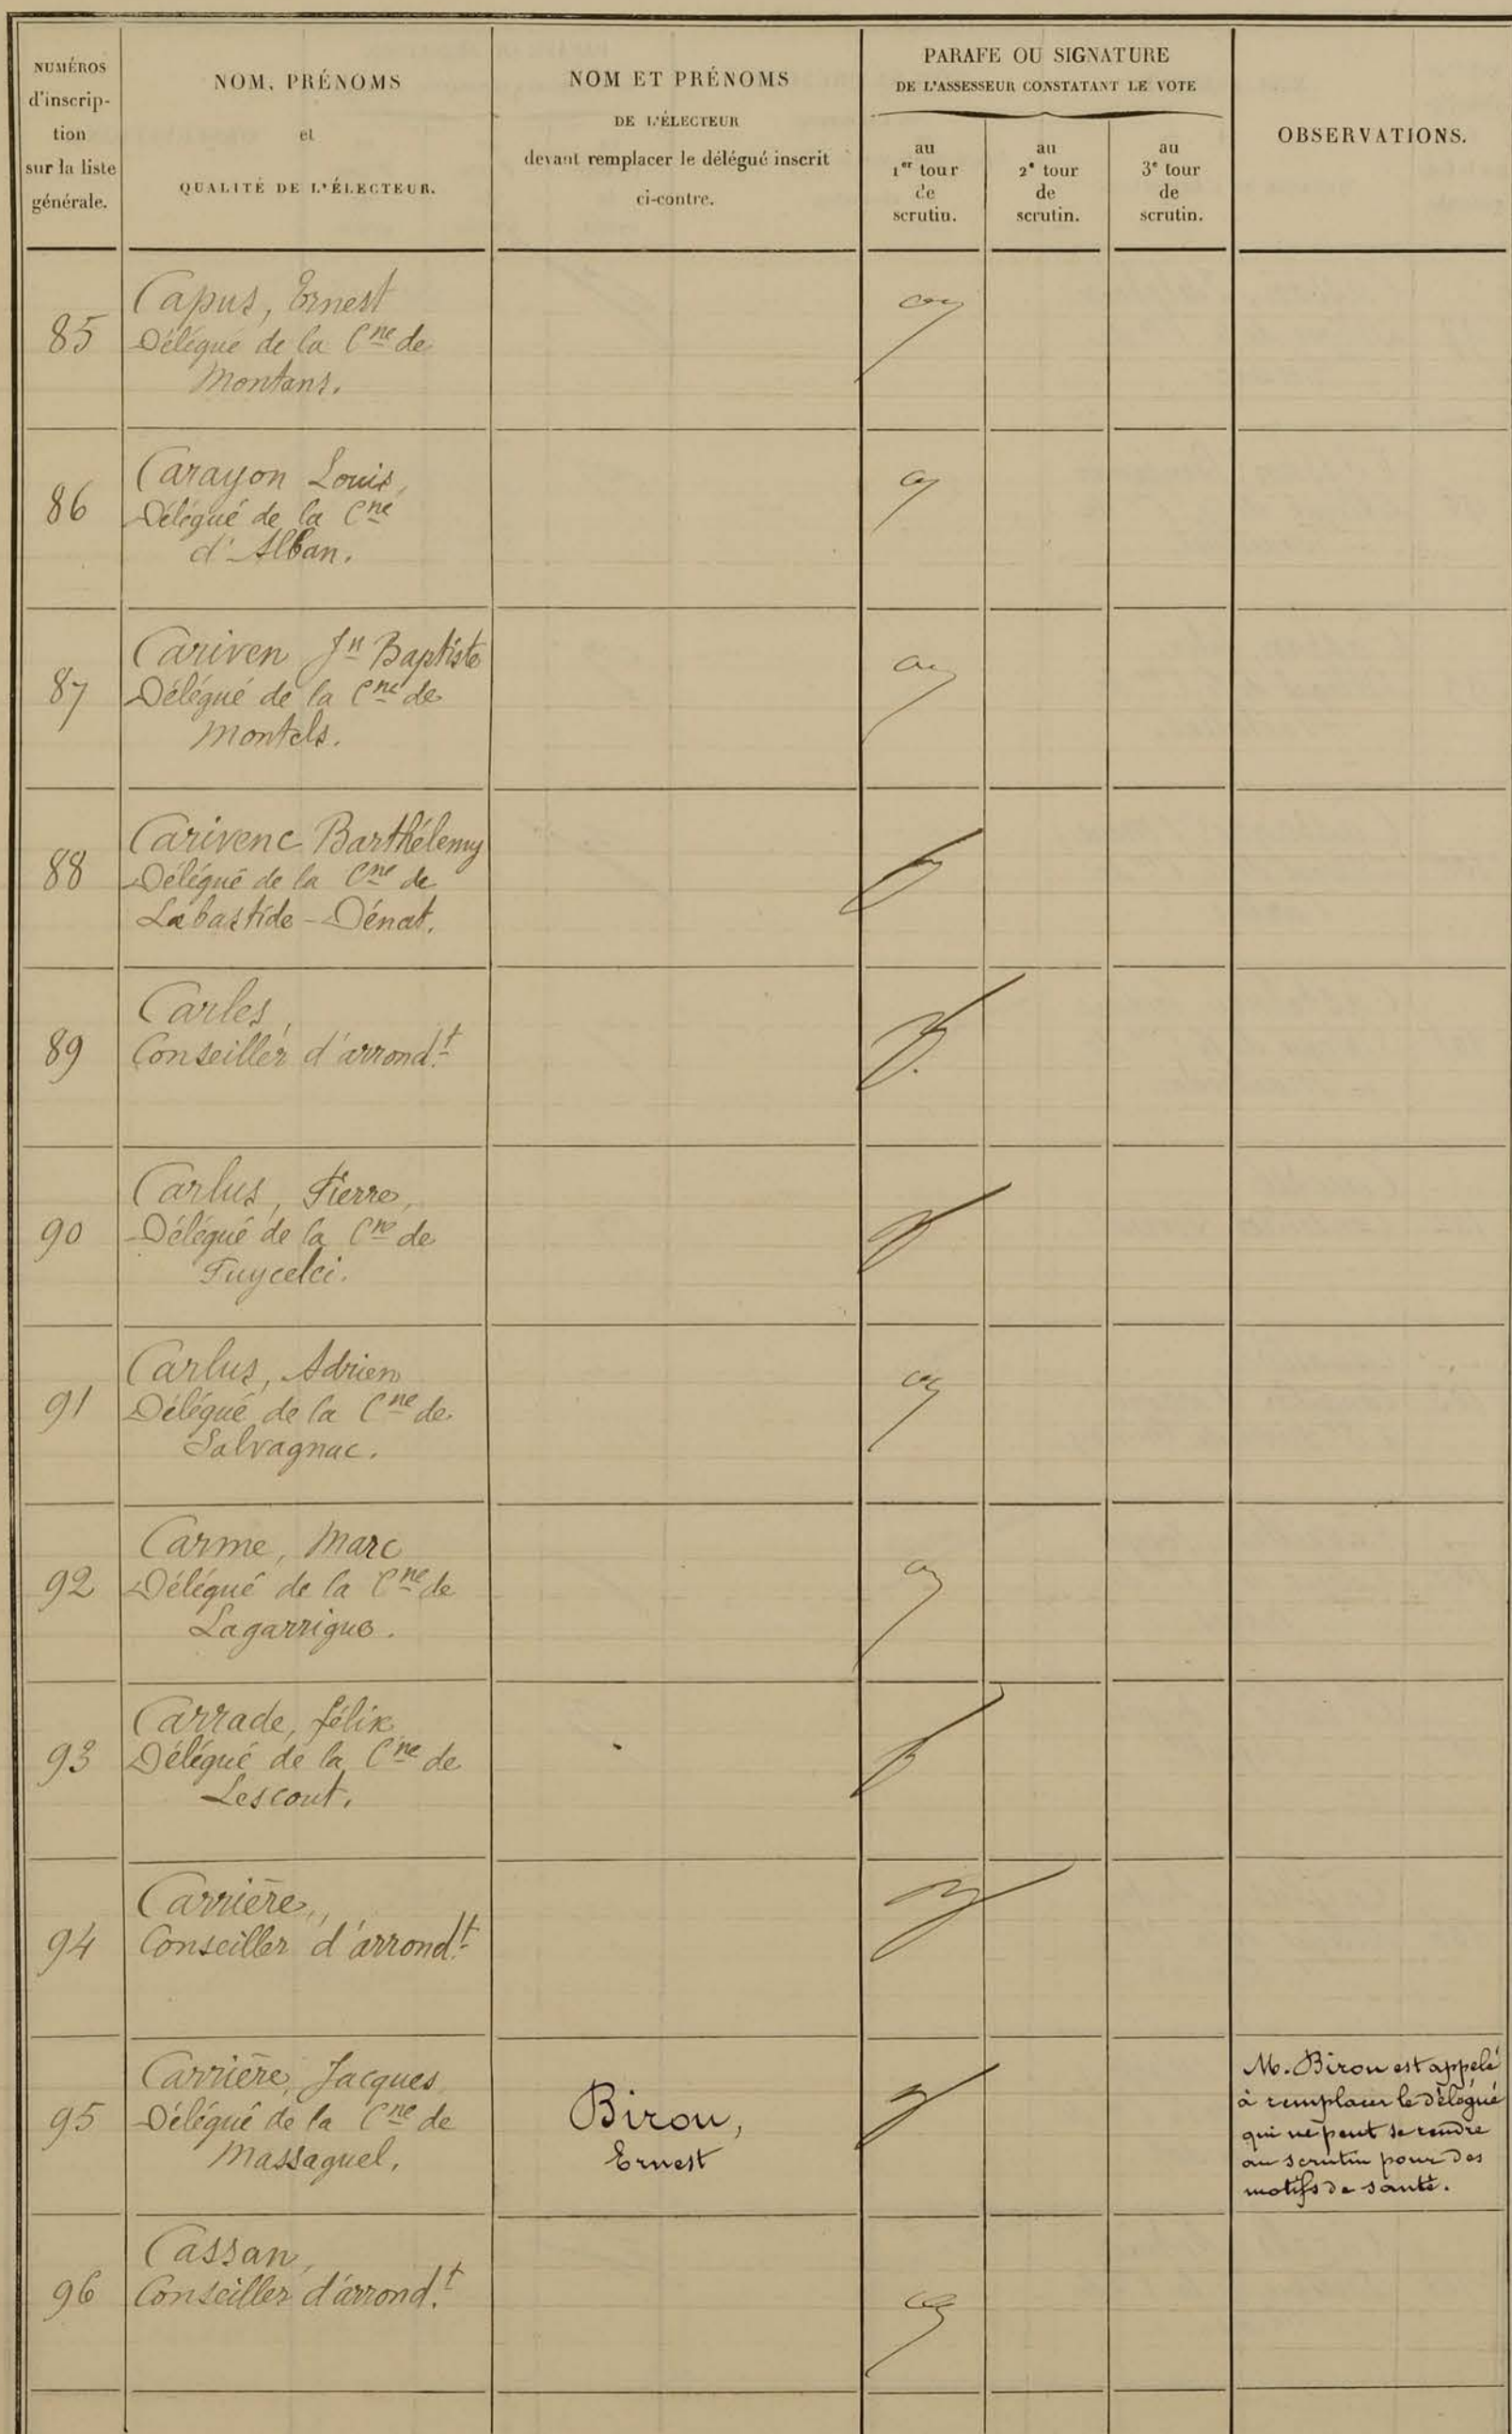 NUMÉROS
d'inscrip-
tion
sur la liste
générale.
NOM, PRÉNOMS
et
QUALITÉ DE L'ÉLECTEUR.
NOM ET PRÉNOMS
DE L'ÉLECTEUR
devant remplacer le délégué inscrit
ci-contre.
PARAFE OU SIGNATURE
DE L'ASSESSEUR CONSTATANT LE VOTE
au
1er tour
de
scrutin.
au
2e tour
de
scrutin.
au
3e tour
de
scrutin.
OBSERVATIONS.
85
Capus, Ernest
Délégué de la Cne de
Montans.
86
Carayon Louis,
Délégué de la Cne
d'Alban.
87
Cariven Jn Baptiste
Délégué de la Cne de
Montels.
88
Carivenc Barthélemy
Délégué de la Cne de
Labastide-Dénat.
89
Carles,
Conseiller d'arrondt
90
Carlus, Pierre,
Délégué de la Cne de
Puycelci.
91
Carlus, Adrien
Délégué de la Cne de
Salvagnac.
92
Carme, Marc
Délégué de la Cne de
Lagarrigue.
93
Carrade, félix
Délégué de la Cne de
Lescout.
94
Carrière,
Conseiller d'arrondt
95
Carrière, Jacques
Délégué de la Cne de
Massaguel,
Birou,
Ernest
M. Birou est appelé
à remplacer le délégué
qui ne peut se rendre
au scrutin pour des
motifs de santé.
96
Cassan,
Conseiller d'arrond.t